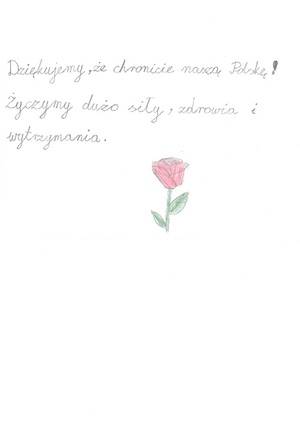 Dziękujemy, że chronicie naszą Polskę!
Życzymy dużo siły, zdrowia i
wytrzymania.